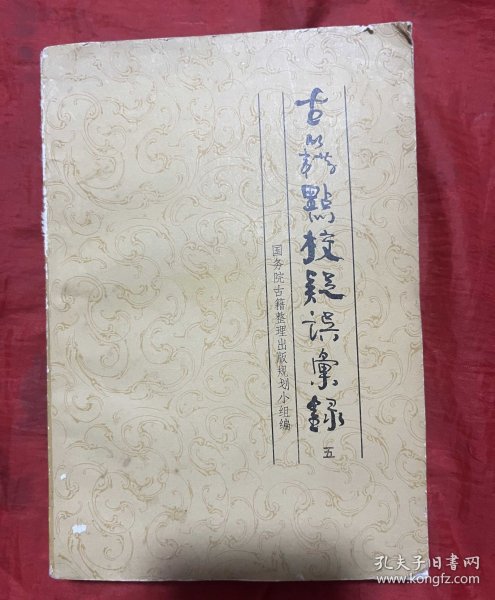 古籍點校疑誤彙録
五
国务院古籍整理出版规划小组编
孔夫子旧书网
www.kongfz.com